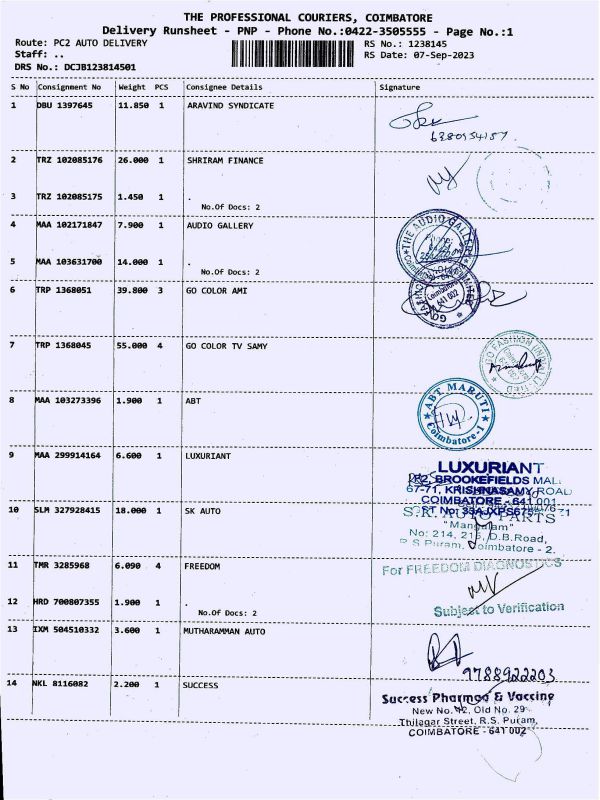 THE PROFESSIONAL COURIERS, COIMBATORE
Delivery Runsheet - PNP - Phone No.:0422-3505555 - Page No.:1
Route: PC2 AUTO DELIVERY RS No.: 1238145
Staff: .. RS Date: 07-Sep-2023
DRS No.: DCJB123814501
S No Consignment No Weight PCS Consignee Details Signature
1 DBU 1397645 11.850 1 ARAVIND SYNDICATE
6380954157
2 TRZ 102085176 26.000 1 SHRIRAM FINANCE
3 TRZ 102085175 1.450 1 .
No.Of Docs: 2
4 MAA 102171847 7.900 1 AUDIO GALLERY
THE AUDIO GALLERY
5 MAA 103631700 14.000 1 .
No.Of Docs: 2
6 TRP 1368051 39.800 3 GO COLOR AMI
Coimbatore
641 002
7 TRP 1368045 55.000 4 GO COLOR TV SAMY
GO FASHION (INDIA) LIMITED
8 MAA 103273396 1.900 1 ABT
ABT MARUTI
Coimbatore-1
9 MAA 299914164 6.600 1 LUXURIANT
LUXURIANT
BROOKEFIELDS MALL
67-71, KRISHNASAMY ROAD
COIMBATORE - 641 001
10 SLM 327928415 18.000 1 SK AUTO
S.K. AUTO PARTS
"Mangalam"
No: 214, 215, D.B.Road,
R S Puram, Coimbatore - 2.
11 TMR 3285968 6.090 4 FREEDOM
For FREEDOM DIAGNOSTICS
12 HRD 700807355 1.900 1 .
No.Of Docs: 2
Subject to Verification
13 IXM 504510332 3.600 1 MUTHARAMMAN AUTO
9788922203
14 NKL 8116082 2.200 1 SUCCESS
Success Pharma & Vaccine
New No. 42, Old No. 29
Thilagar Street, R.S. Puram,
COIMBATORE - 641 002